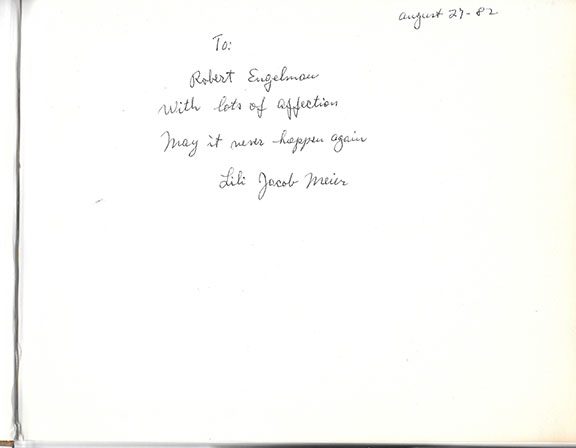 August 27-82
To:
Robert Engelman
With lots of affection
May it never happen again
Lili Jacob Meier